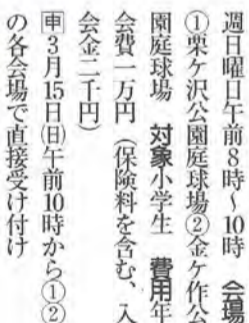 週日曜日午前8時～10時　会場
①栗ケ沢公園庭球場②金ケ作公
園庭球場　対象小学生　費用年
会費一万円（保険料を含む、入
会金二千円）
申3月15日㈰午前10時から①②
の各会場で直接受け付け